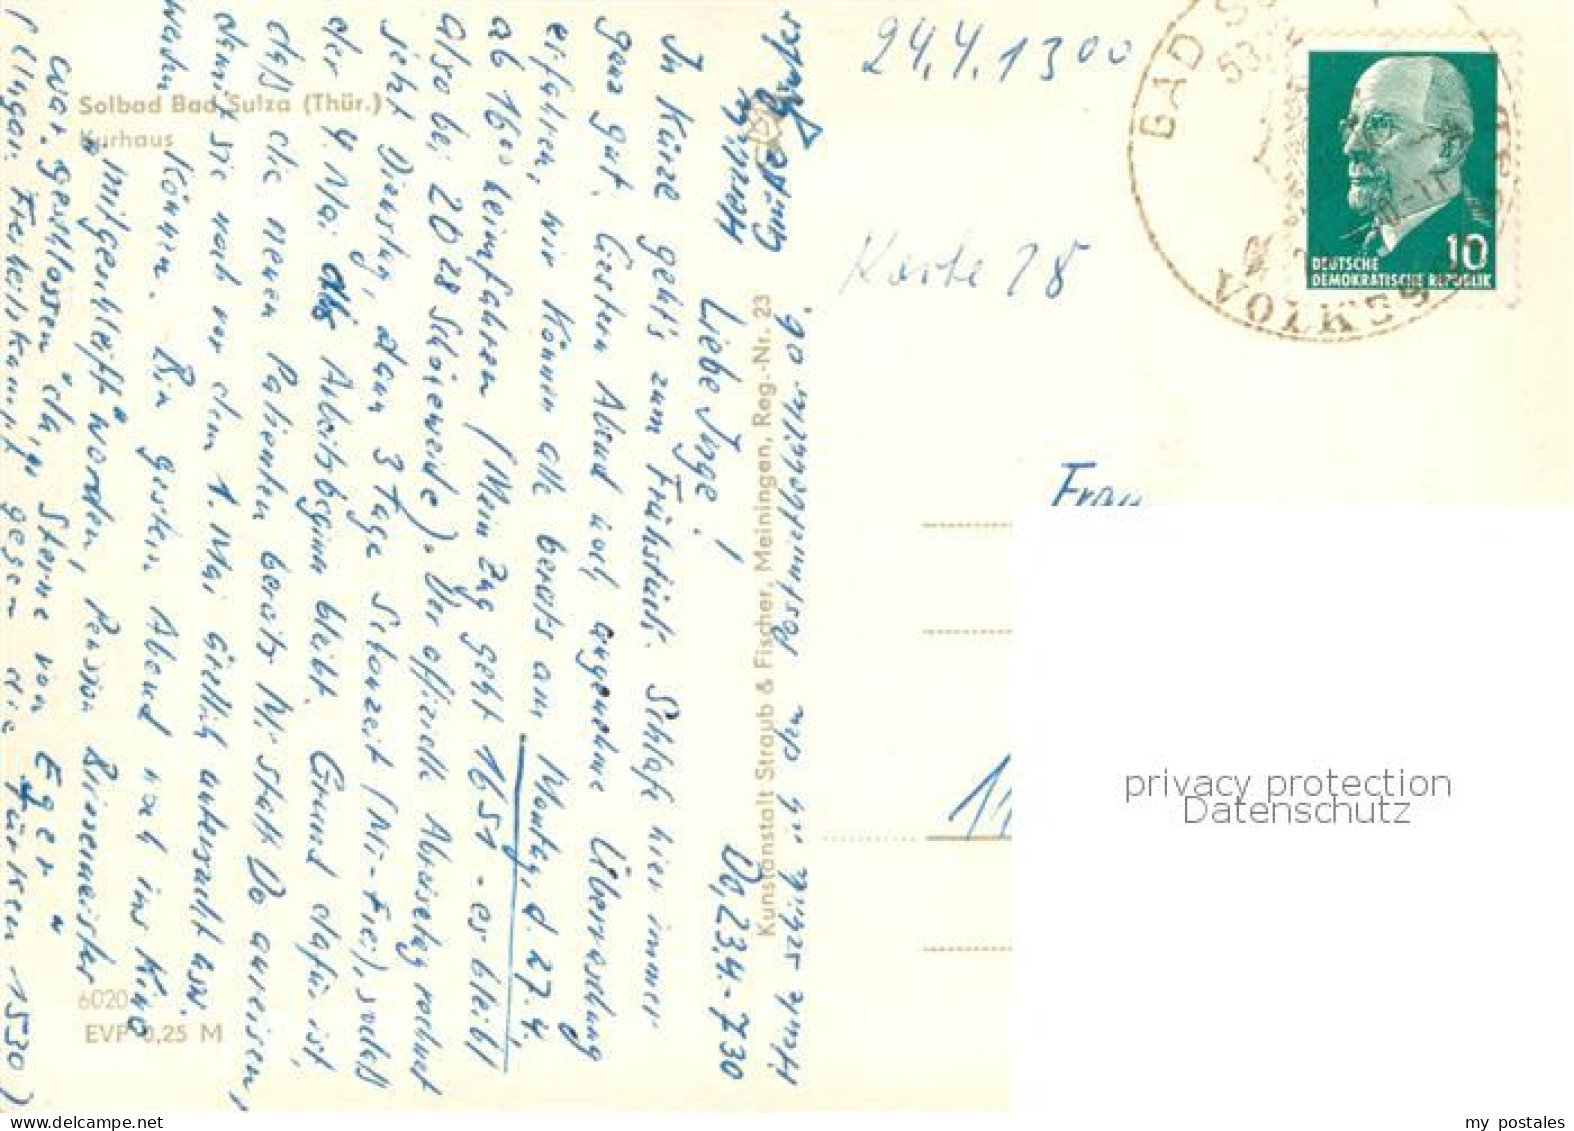 Solbad Bad Sulza (Thür.)
Kurhaus
6020
EVP 0,25 M
Kunstanstalt Straub & Fischer, Meiningen, Reg.-Nr. 23
24.4. 13 00
Karte 28
BAD SU
53
VOLKSSOL
10
DEUTSCHE
DEMOKRATISCHE REPUBLIK
Frau
Do, 23.4. - 7 30
Liebe Inge!
In Kürze geht's zum Frühstück. Schlafe hier immer
ganz gut. Gestern Abend noch angenehme Überraschung
erfahren, wir können alle bereits am Montag, d. 27.4.
ab 16 00 heimfahren (Mein Zug geht 16 51 - es bleibt
also bei 20 28 Schöneweide). Der offizielle Abreisetag rechnet
jetzt Dienstag, dann 3 Tage Schonzeit (Mi-Frei), sodaß
der 4. Mai als Arbeitsbeginn bleibt. Grund dafür ist,
daß die neuen Patienten bereits Mi statt Do anreisen,
damit sie noch vor dem 1. Mai ärztlich untersucht usw.
werden können. Bin gestern Abend noch ins Kino
"mitgeschleift" worden, Pension Rinnemeister
war geschlossen da, "Sterne von Eger"
(Ungar. Freiheitskampf gegen die Türken 1550)
Herzlichst
Grüße
Heute schicke ich den Postmietbehälter ab.
privacy protection
Datenschutz
my postales